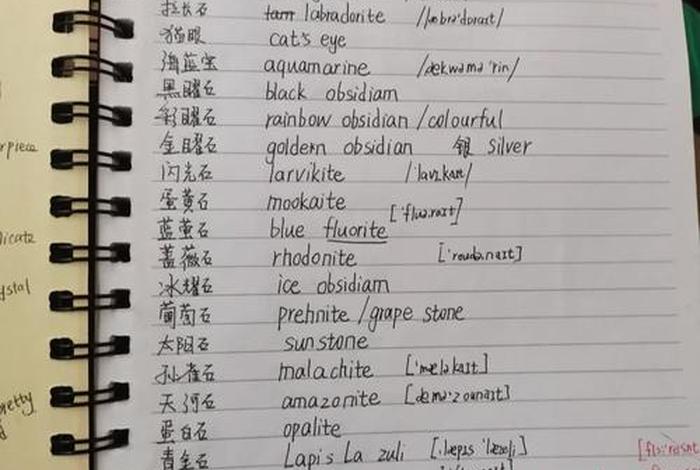 拉长石 labradorite /læbrə'dɔraɪt/
猫眼 cat's eye
海蓝宝 aquamarine /ækwəmə'rin/
黑曜石 black obsidiam
彩曜石 rainbow obsidian /colourful
金曜石 goldern obsidian 银 silver
闪光石 larvikite
蛋黄石 mookaite
蓝萤石 blue fluorite ['fluə.raɪt]
蔷薇石 rhodonite
冰耀石 ice obsidiam
葡萄石 prehnite /grape stone
太阳石 sun stone
孙雀石 malachite ['mæləkaɪt]
天河石 amazonite
蛋白石 opalite
青金石 Lapis La zuli